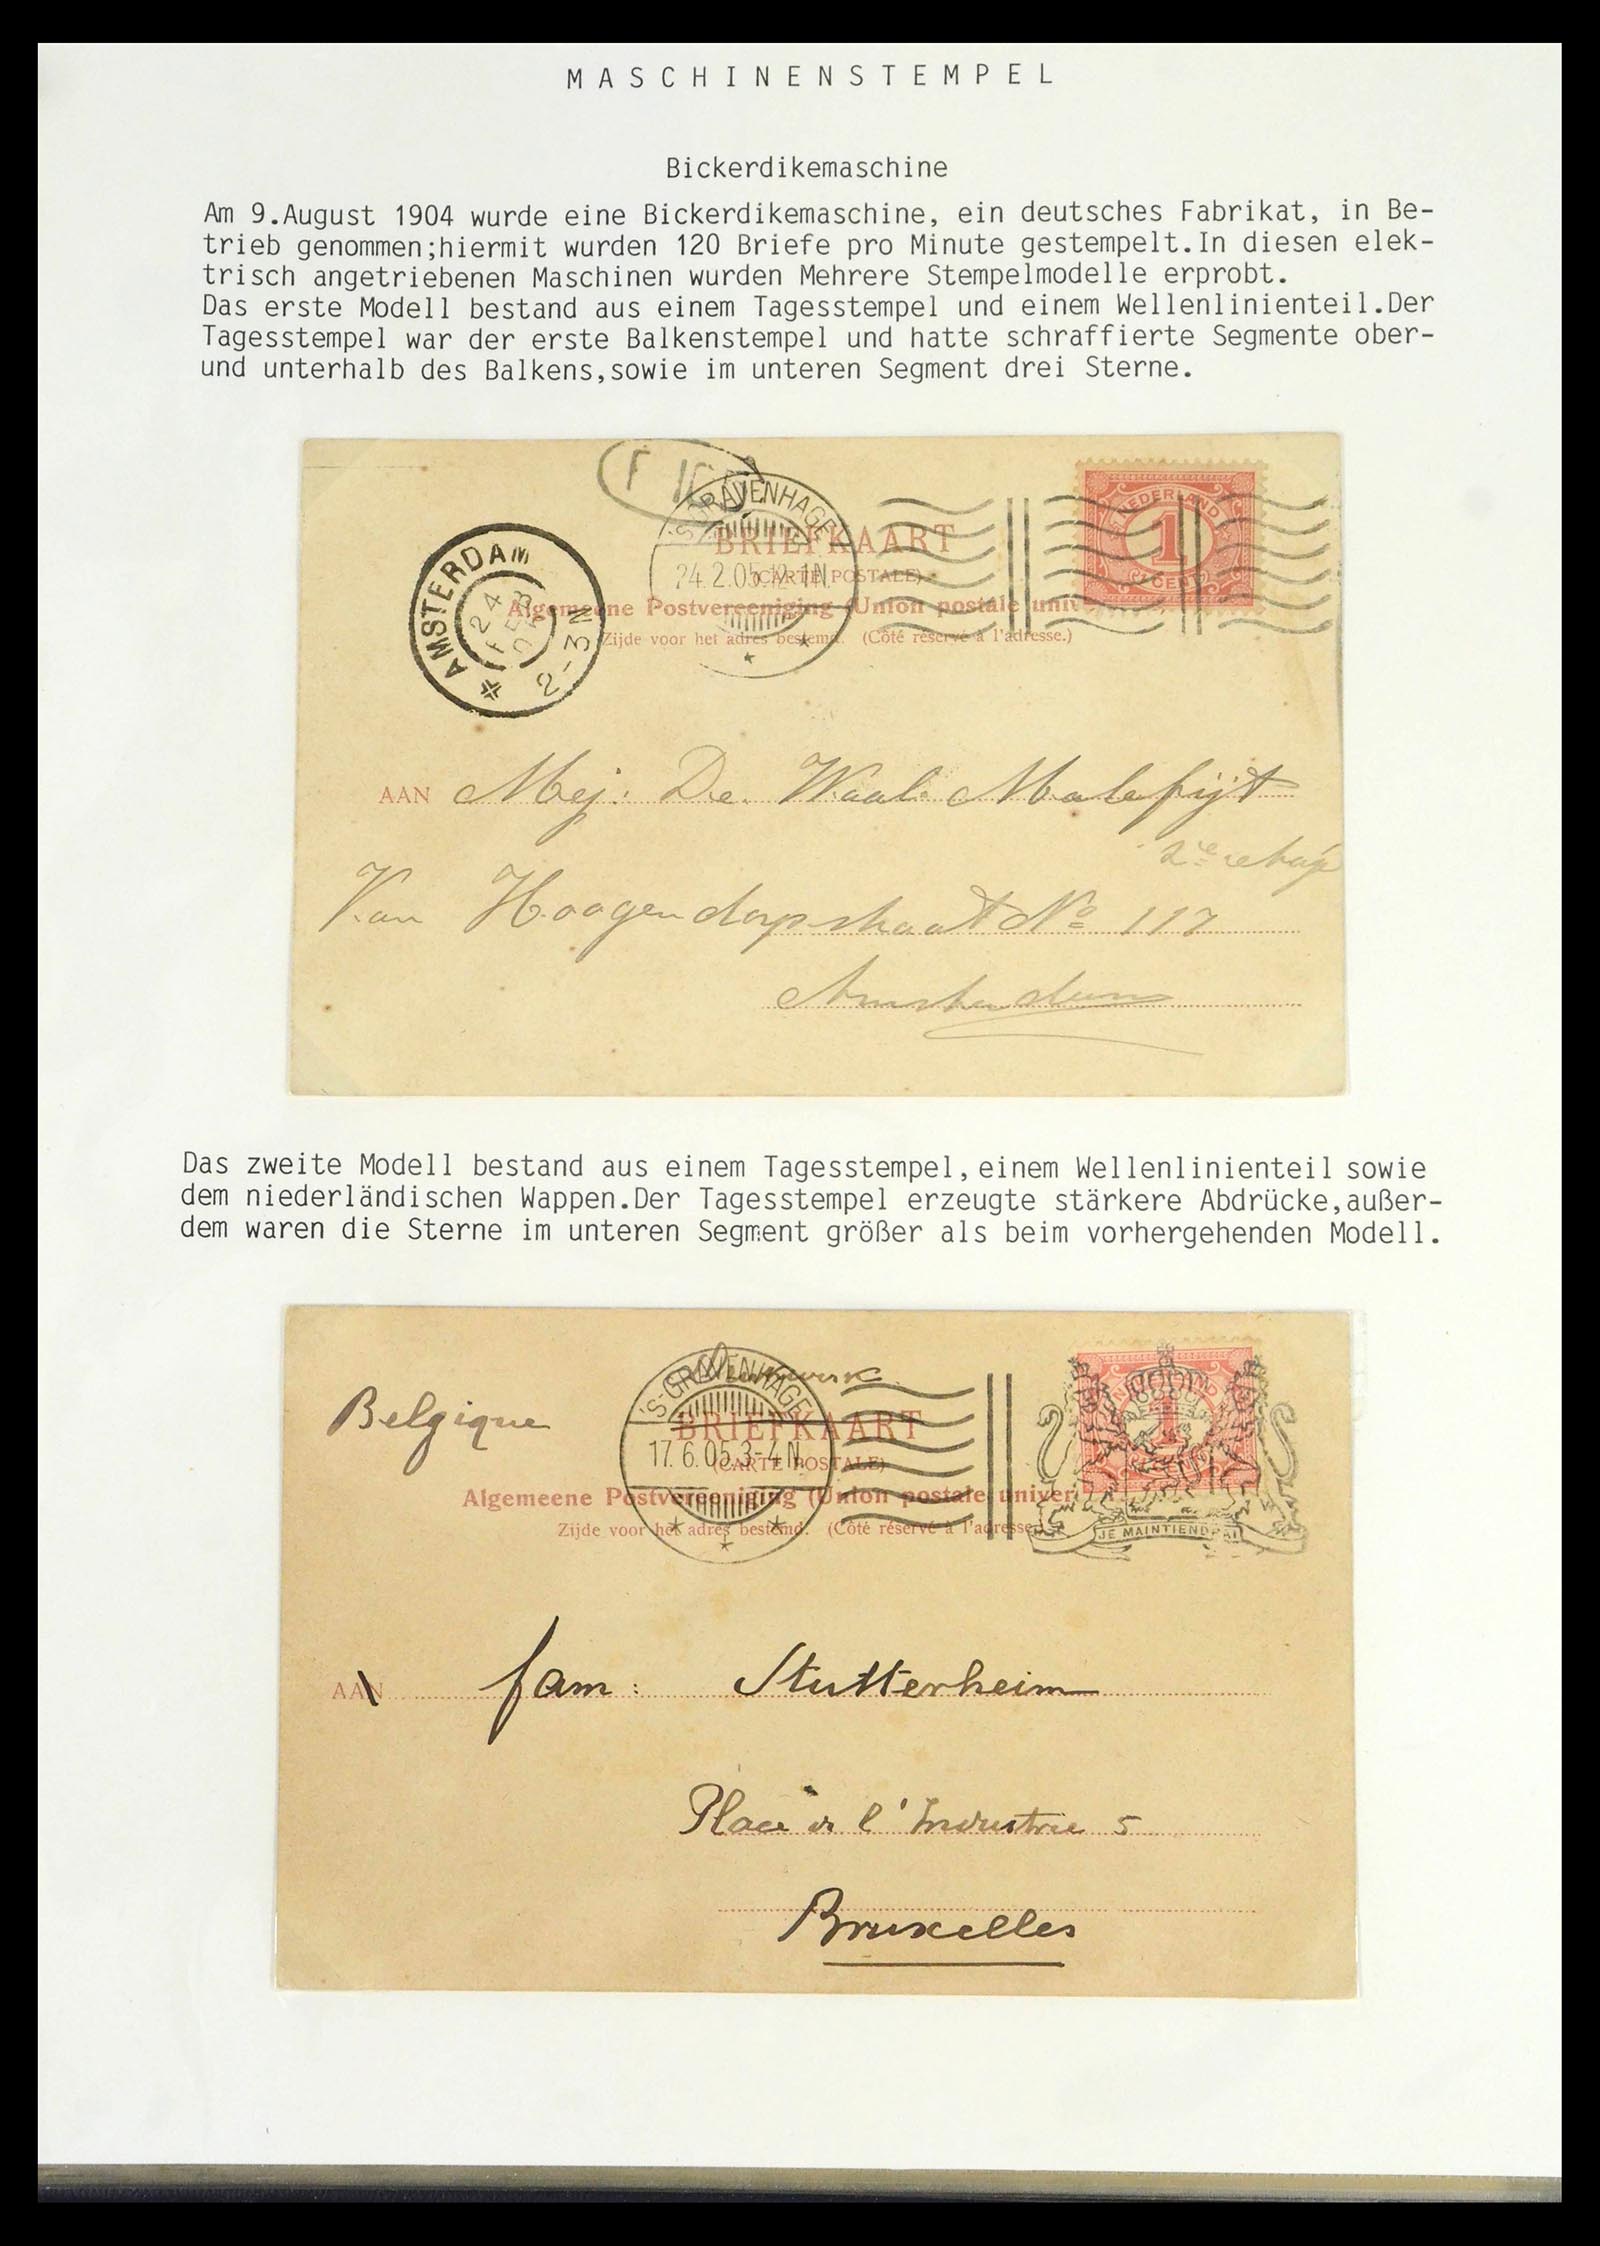 MASCHINENSTEMPEL
Bickerdikemaschine
Am 9.August 1904 wurde eine Bickerdikemaschine, ein deutsches Fabrikat, in Be-
trieb genommen;hiermit wurden 120 Briefe pro Minute gestempelt.In diesen elek-
trisch angetriebenen Maschinen wurden Mehrere Stempelmodelle erprobt.
Das erste Modell bestand aus einem Tagesstempel und einem Wellenlinienteil.Der
Tagesstempel war der erste Balkenstempel und hatte schraffierte Segmente ober-
und unterhalb des Balkens,sowie im unteren Segment drei Sterne.
'S-GRAVENHAGE
24.2.05.12-1N.
NEDERLAND
1
CENT
BRIEFKAART
(CARTE POSTALE)
Algemeene Postvereeniging (Union postale univ
Zijde voor het adres bestemd. (Côté réservé à l'adresse.)
AMSTERDAM
24 FEB
2-3N
AAN Mej. De Waal Malefijt
Van Hoogendorpstraat No 117
Amsterdam
Das zweite Modell bestand aus einem Tagesstempel,einem Wellenlinienteil sowie
dem niederländischen Wappen.Der Tagesstempel erzeugte stärkere Abdrücke,außer-
dem waren die Sterne im unteren Segment größer als beim vorhergehenden Modell.
Belgique
'S-GRAVENHAGE
17.6.05.3-4N.
1
BRIEFKAART
(CARTE POSTALE)
Algemeene Postvereeniging (Union postale univer
Zijde voor het adres bestemd. (Côté réservé à l'adresse.)
JE MAINTIENDRAI
AAN fam: Stutterheim
Place de l'Industrie 5
Bruxelles